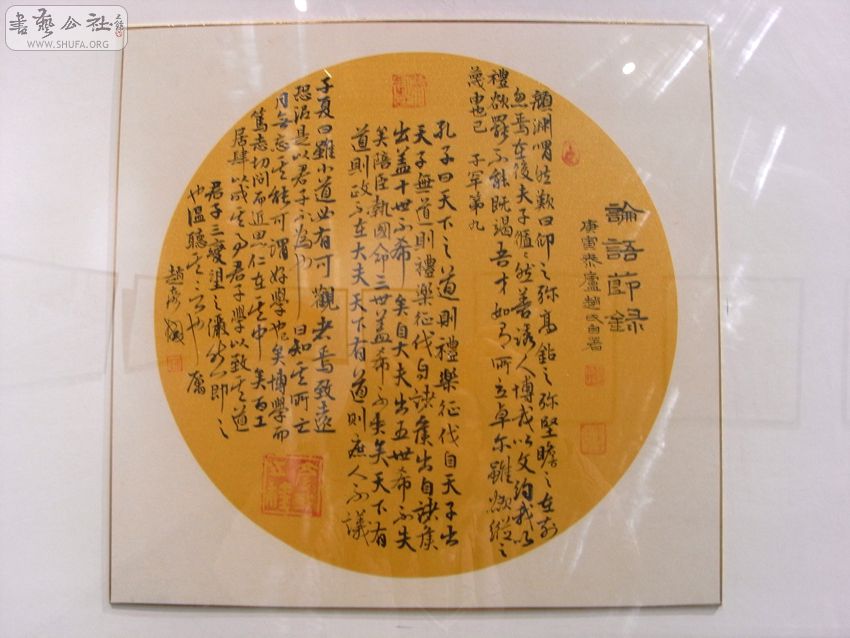 書藝公社
WWW.SHUFA.ORG
論語節錄
庚寅泰廬趙氏自署
顏淵喟然歎曰仰之弥高鉆之弥堅瞻之在前
忽焉在後夫子循循然善誘人博我以文約我以
禮欲罷不能既竭吾才如有所立卓尔雖欲從之
蔑由也已 子罕第九
孔子曰天下之道則禮樂征伐自天子出
天子無道則禮樂征伐自諸侯出自諸侯
出盖十世不希矣自大夫出五世希不失
矣陪臣執國命三世盖希不失矣天下有
道則政不在大夫天下有道則庶人不議
子夏曰雖小道必有可觀者焉致遠
恐泥是以君子不為也 日知其所亡
月無忘其能可謂好學也矣博學而
篤志切問而近思仁在其中矣百工
居肆以成其事君子學以致其道
君子三變望之儼然即之
也温聽其言也 厲